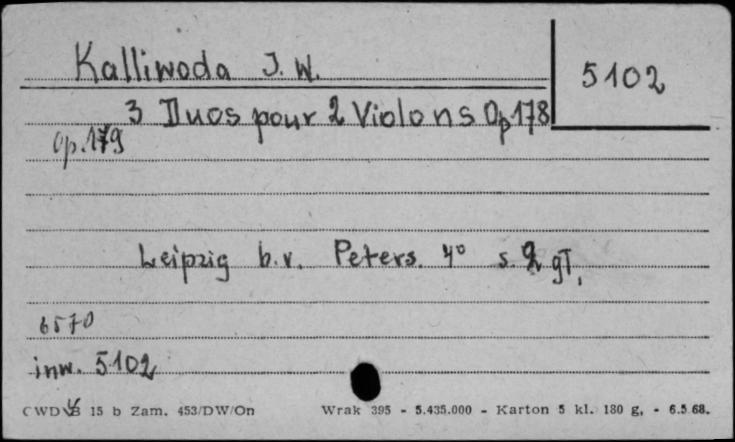 Kalliwoda J. W.
5102
3 Duos pour 2 Violons Op 178
Op. 179
Leipzig b.v. Peters. 4° s. 2 gT.
6570
inw. 5102
CWD 15 b Zam. 453/DW/On Wrak 395 - 5.435.000 - Karton 5 kl. 180 g, - 6.5.68.